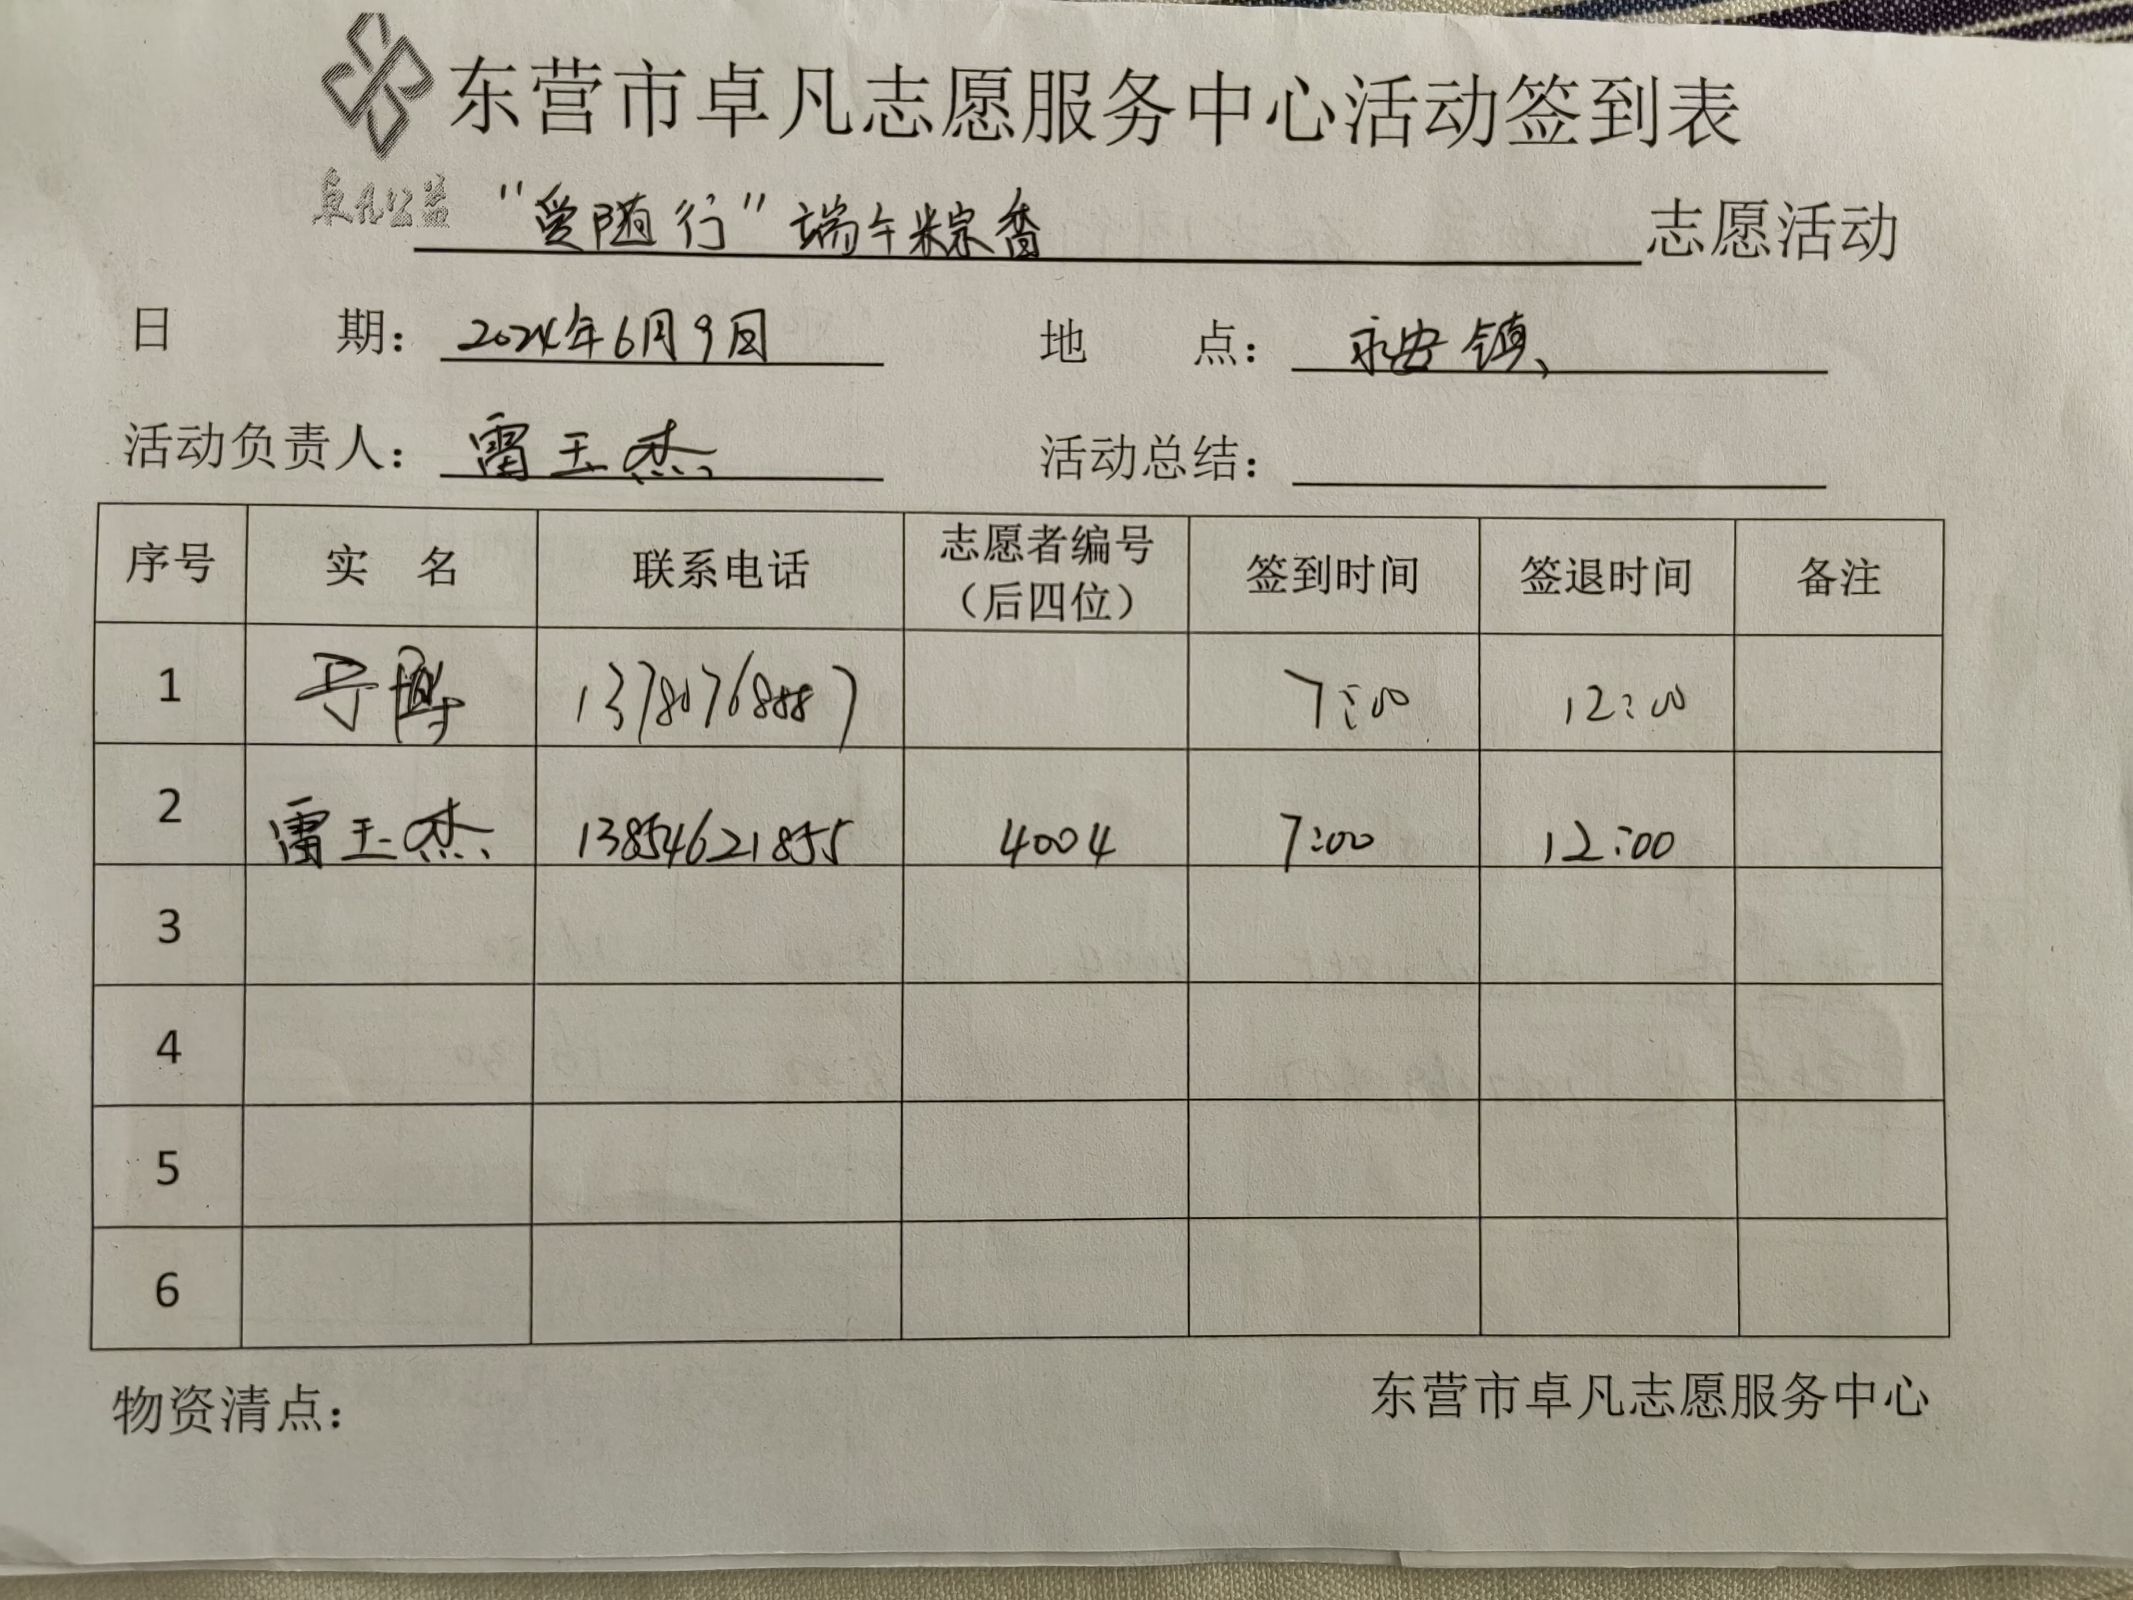 东营市卓凡志愿服务中心活动签到表
卓凡公益
“爱随行”端午粽香 志愿活动
日 期：2024年6月9日 地 点：永安镇
活动负责人：雷玉杰 活动总结：
序号 实 名 联系电话 志愿者编号（后四位） 签到时间 签退时间 备注
1 7:00 12:00
2 雷玉杰 13854621855 4004 7:00 12:00
3
4
5
6
物资清点： 东营市卓凡志愿服务中心